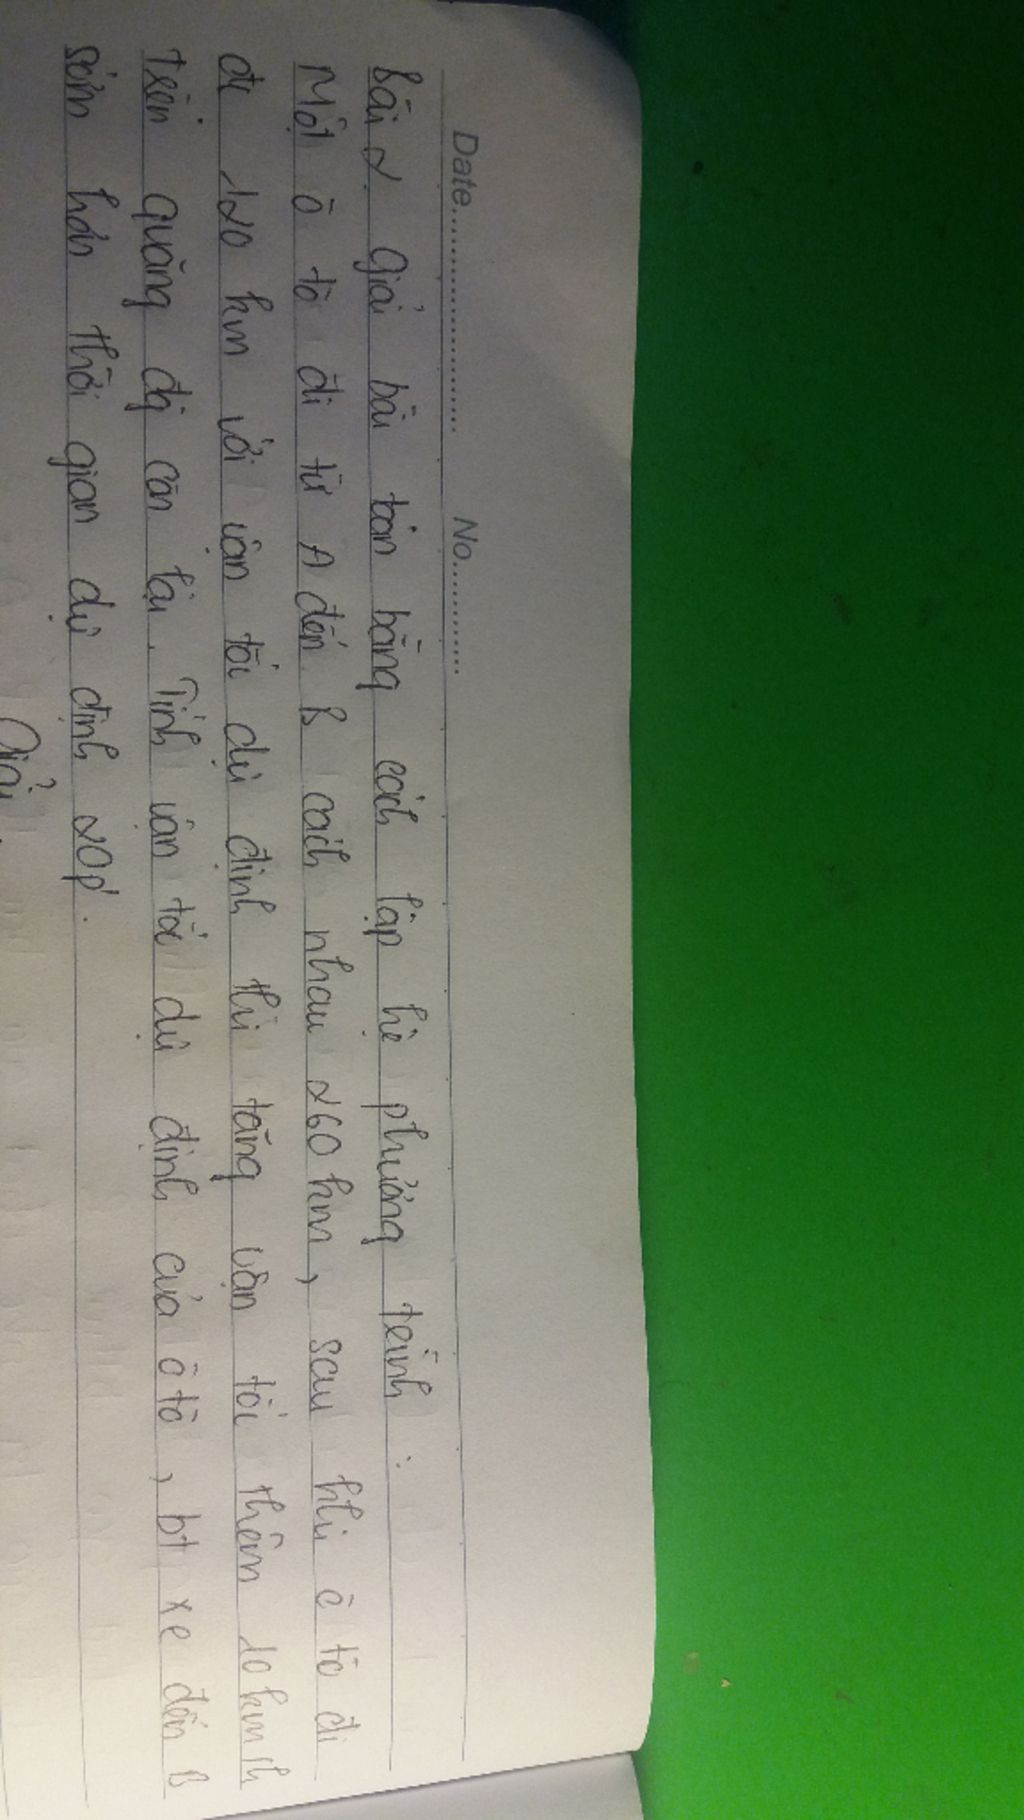 Date.............................. No...............
Bài 2 Giải bài toán bằng cách lập hệ phương trình :
Một ô tô đi từ A đến B cách nhau 260 km, sau khi ô tô đi
đc 120 km với vận tốc dự định thì tăng vận tốc thêm 10km/h
trên quãng đg còn lại. Tính vận tốc dự định của ô tô, bt xe đến B
sớm hơn thời gian dự định 20p'.
Giải.